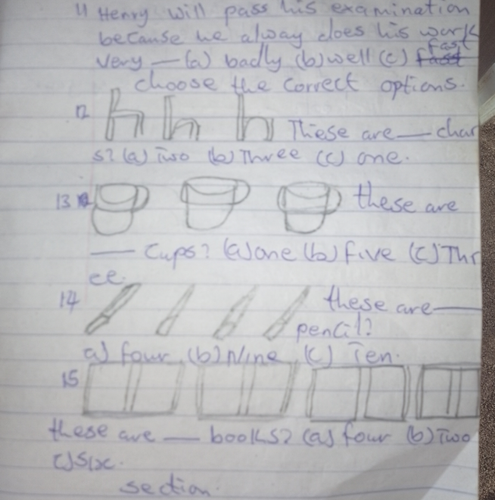 11 Henry will pass his examination
because he alway does his work
very — (a) badly (b) well (c) fast
choose the correct options.
12 These are — char
s? (a) Two (b) Three (c) one.
13 these are
— Cups? (a) one (b) five (c) Thr
ee.
14 these are —
pencil?
a) four (b) Nine (c) Ten.
15
these are — books? (a) four (b) Two
c) six.
section.